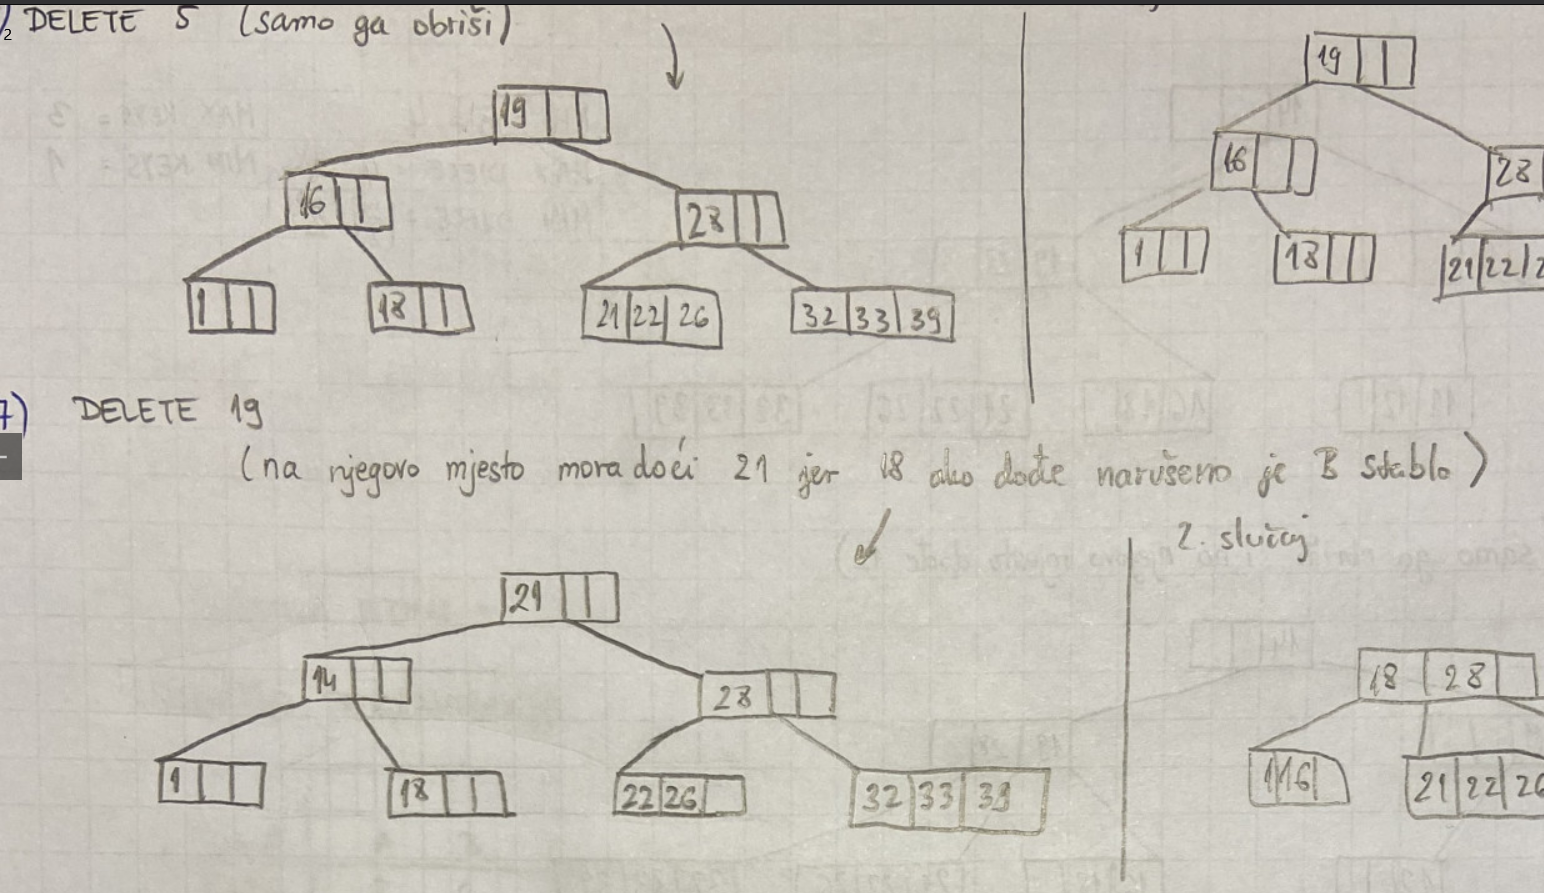 2
DELETE 5 (samo ga obriši)
19
16
28
1
18
21 22 26
32 33 39
19
16
28
1
18
21 22 2
7) DELETE 19
(na njegovo mjesto mora doći 21 jer 18 ako dođe narušeno je B stablo)
21
14
28
1
18
22 26
32 33 39
2. slučaj
18 28
1 16
21 22 26